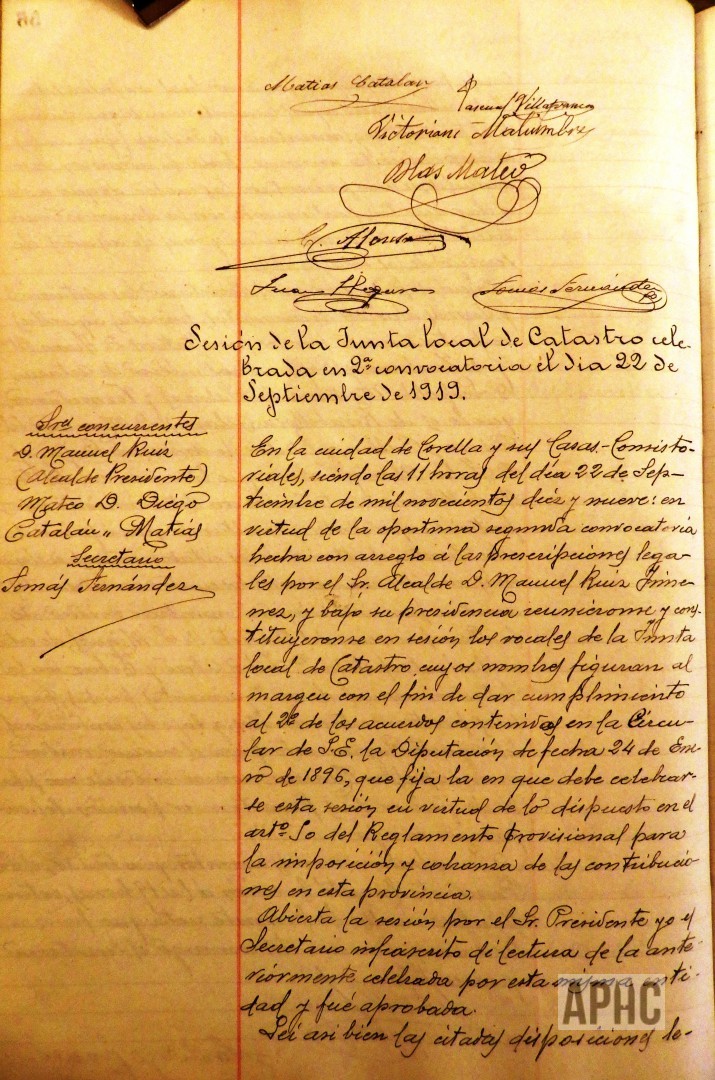 Matias Catalán
Pascual Villafranca
Victoriano Malumbres
Blas Mateo
C. Alonso
Juan
Tomás Fernández
Sesión de la Junta local de Catastro cele-
brada en 2ª convocatoria el dia 22 de
Septiembre de 1919.
Sres concurrentes
D. Manuel Ruiz
(Alcalde Presidente)
Mateo D. Diego
Catalán " Matías
Secretario
Tomás Fernández
En la ciudad de Corella y sus Casas-Consisto-
riales, siendo las 11 horas del día 22 de Sep-
tiembre de mil novecientos diez y nueve: en
virtud de la oportuna segunda convocatoria
hecha con arreglo á las prescripciones lega-
les por el Sr. Alcalde D. Manuel Ruiz Jime-
nez, y bajo su presidencia reuniéronse y cons-
tituyeronse en sesión los vocales de la Junta
local de Catastro cuyos nombres figuran al
margen con el fin de dar cumplimiento
al 2º de los acuerdos contenidos en la Circu-
lar de S.E. la Diputación de fecha 24 de Ene-
ro de 1896, que fija la en que debe celebrar-
se esta sesión en virtud de lo dispuesto en el
artº 50 del Reglamento provisional para
la imposición y cobranza de las contribucio-
nes en esta provincia.
Abierta la sesión por el Sr. Presidente yo el
Secretario infrascrito di lectura de la ante-
riormente celebrada por esta misma enti-
dad y fué aprobada.
Leí asi bien las citadas disposiciones le-
APHC